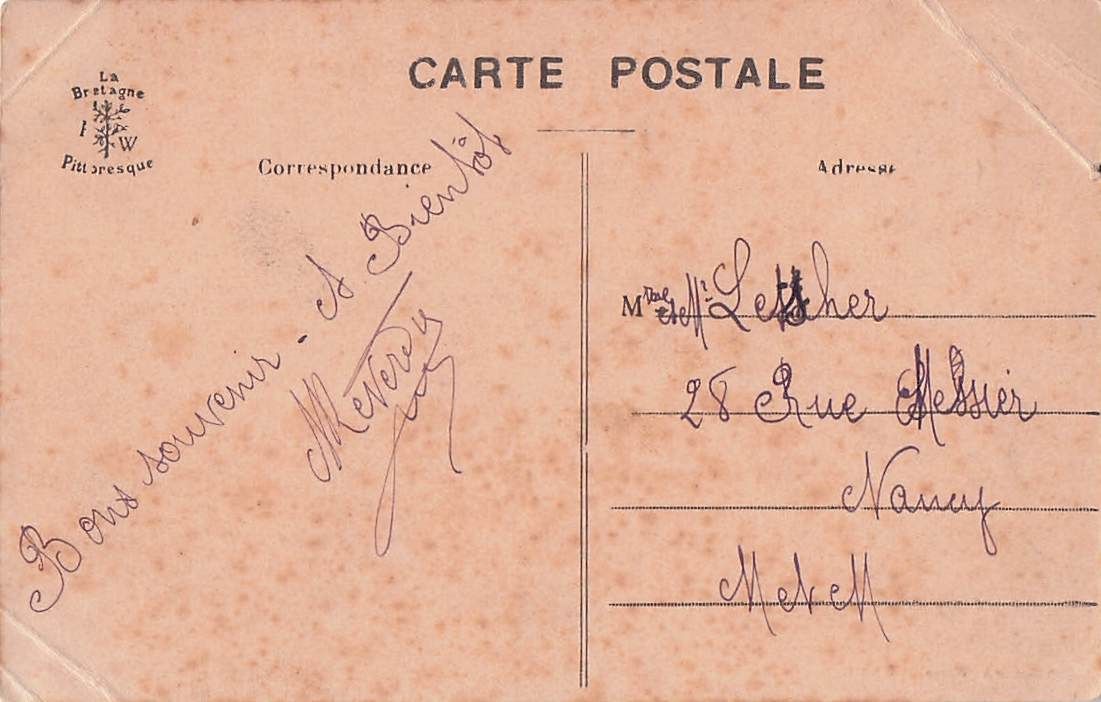 CARTE POSTALE
La
Bretagne
I W
Pittoresque
Correspondance
Adresse
Bons souvenir - A. Bientôt
Mme et Mr Lescher
28 Rue Messier
Nancy
M et M